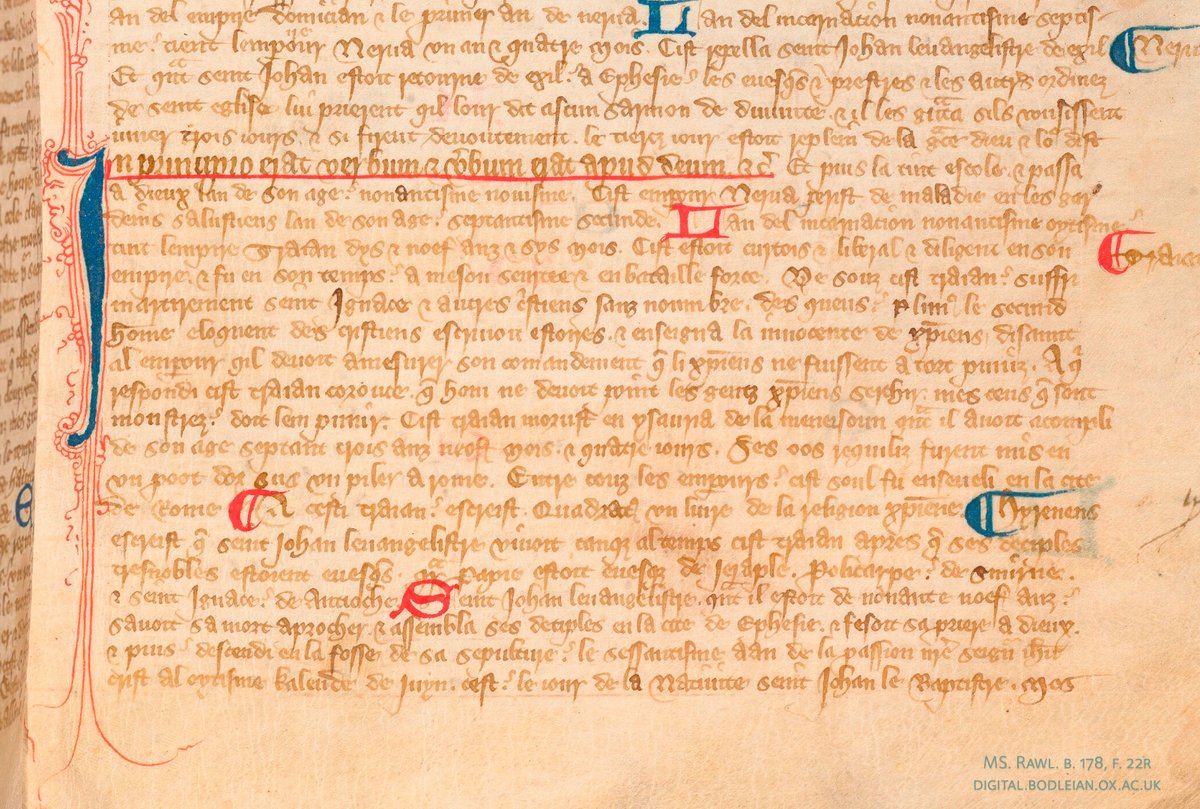 an del empire Domician & le primer an de nerua. Lan del incarnation nonantisme septis-
me. tient lempour Nerua vn an & quatre mois. Cist repella seint Johan leuangelistre de exil Neru
Et qnt seint Johan estoit retourne de exil. a Ephesie. les euesqs & prestres & les autrs ordinez
de seint eglise lui prierent qil lour dit ascun sarmon de diuinite & il les gnta sils vousissent
iuner trois iours. & si firent deuoutement. le tiercz iour estoit replein de la gce dieu & lo dist
In principio erat verbum & vbum erat apud deum. &c. Et puis la tint escole. & passa
a dieux lan de son age. nonantisme nouisme. Cist empour Nerua perist de maladie en les gar
deins salustiens lan de son age. septantisme secunde. Lan del incarnation nonantisme oytisme
tint lempire Traian dys & noef anz & sys mois. Cist estoit curtois & liberal & diligent en son Traian
empire. & fu en son temps. a meson seintee & en bataille force. De souz cist traian. suffri
martirement seint Ignace & autres cstiens sanz noumbre. des queus. plini le secund
home eloquent des cristiens escriuoit estoires. & enseigna la innocente de xpiens, disaunt
al empour qil deuoit amesurer son comandement q li xpiens ne fuissent a tort puniz. A q
respondi cist traian corouce. q hom ne deuoit point les gentz xpiens serchir. mes ceus q sont
monstrez. doit lem punir. Cist traian morust en ysauria de la meneisoun qnt il auoit acompli
de son age septant trois anz neof mois. & quatre iours. Ses oos requiliz furent mis en
vn poot dor sus vn piler a rome. Entre touz les empours. cist soul fu enseueli en la cite
de Rome A cesti traian. escreist. Quadrat vn liure de la religion xpiene. Hyrenens
escreist q seint Johan leuangelistre viuoit tanqz al temps cist traian apres q ses deciples
tresnobles estoient euesqs. qr Papie estoit euesqe de Jeraple. Policarpe. de Smirne.
& seint Ignace. de Antioche. Seint Johan leuangelistre. qnt il estoit de nonante noef anz.
sauoit sa mort aprocher. & assembla ses deciples en la cite de Ephesie. & fesoit sa priere a dieux.
& puis descendi en la fosse de sa sepulture. le sessantisme aan de la passion nre seign ihu
crist al oytisme kalende de Juyn. cest. le iour de la Natiuite seint Johan le Baptistre. Mes
MS. Rawl. B. 178, f. 22r
digital.bodleian.ox.ac.uk